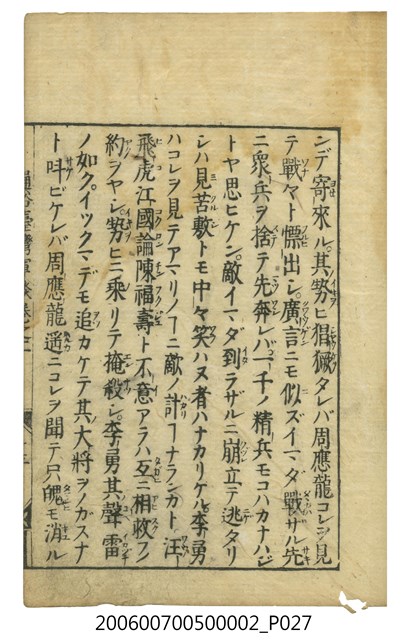 シデ寄來ル。其勢ヒ猖獗タレバ周應龍コレヲ見
テ戰マト慓出シ。廣言ニモ似ズイマダ戰サル先
ニ衆兵ヲ捨テ先奔レバ一千ノ精兵モコハカナハジ
トヤ思ヒケン。敵イマダ到ラザルニ崩立テ逃タリ
シハ見苦敷トモ中々笑ハヌ者ハナカリケル。李勇
ハコレヲ見テアマリノ﹁ニ敵ノ計﹁ナランカト汪
飛虎江國論陳福壽ト不意アラハ互ニ相救フノ
約ヲヤシ。勢ヒニ乘リテ掩殺シ。李勇其聲雷
ノ如クイックマデモ追カケテ其大將ヲノガスナ
ト呌ビケレバ周應龍遥ニコレヲ聞テ只魄モ消ル
200600700500002_P027